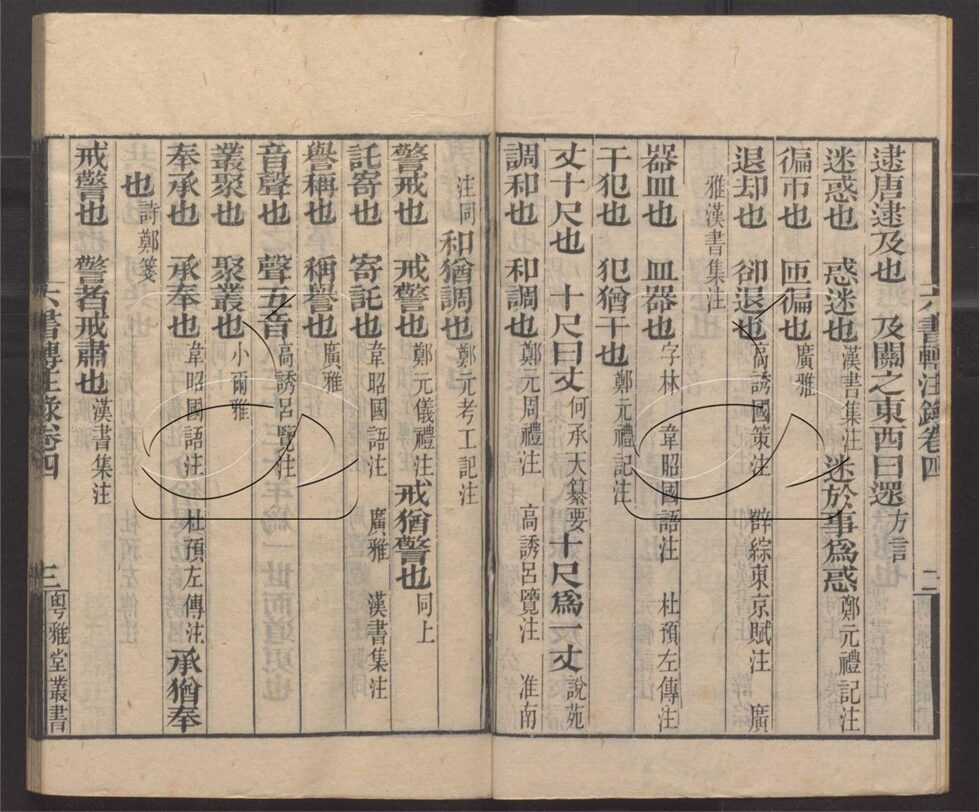 逮唐逮及也　及關之東西曰遝方言
迷惑也　惑迷也漢書集注　迷於事爲惑鄭元禮記注
徧帀也　匝徧也廣雅
退却也　卻退也高誘國策注　薛綜東京賦注　廣
雅漢書集注
器皿也　皿器也字林　韋昭國語注　杜預左傳注
干犯也　犯猶干也鄭元禮記注
丈十尺也　十尺曰丈何承天纂要　十尺爲一丈說苑
調和也　和調也鄭元周禮注　高誘呂覽注　淮南
注同　和猶調也鄭元考工記注
警戒也　戒警也鄭元儀禮注　戒猶警也同上
託寄也　寄託也韋昭國語注　廣雅　漢書集注
譽稱也　稱譽也廣雅
音聲也　聲五音高誘呂覽注
叢聚也　聚叢也小爾雅
奉承也　承奉也韋昭國語注　杜預左傳注　承猶奉
也詩鄭箋
戒警也　警者戒肅也漢書集注
六書轉注錄卷四　二
六書轉注錄卷四　三　粵雅堂叢書